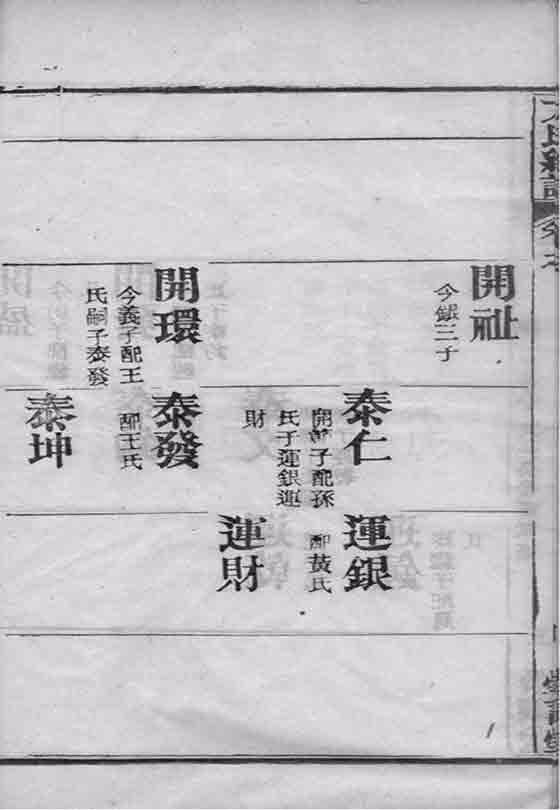 開祉
今銀三子
開環
今義子配王
氏嗣子泰發
泰仁
開子配孫
氏子運銀運
財
泰發
配王氏
泰坤
運銀
配黃氏
運財